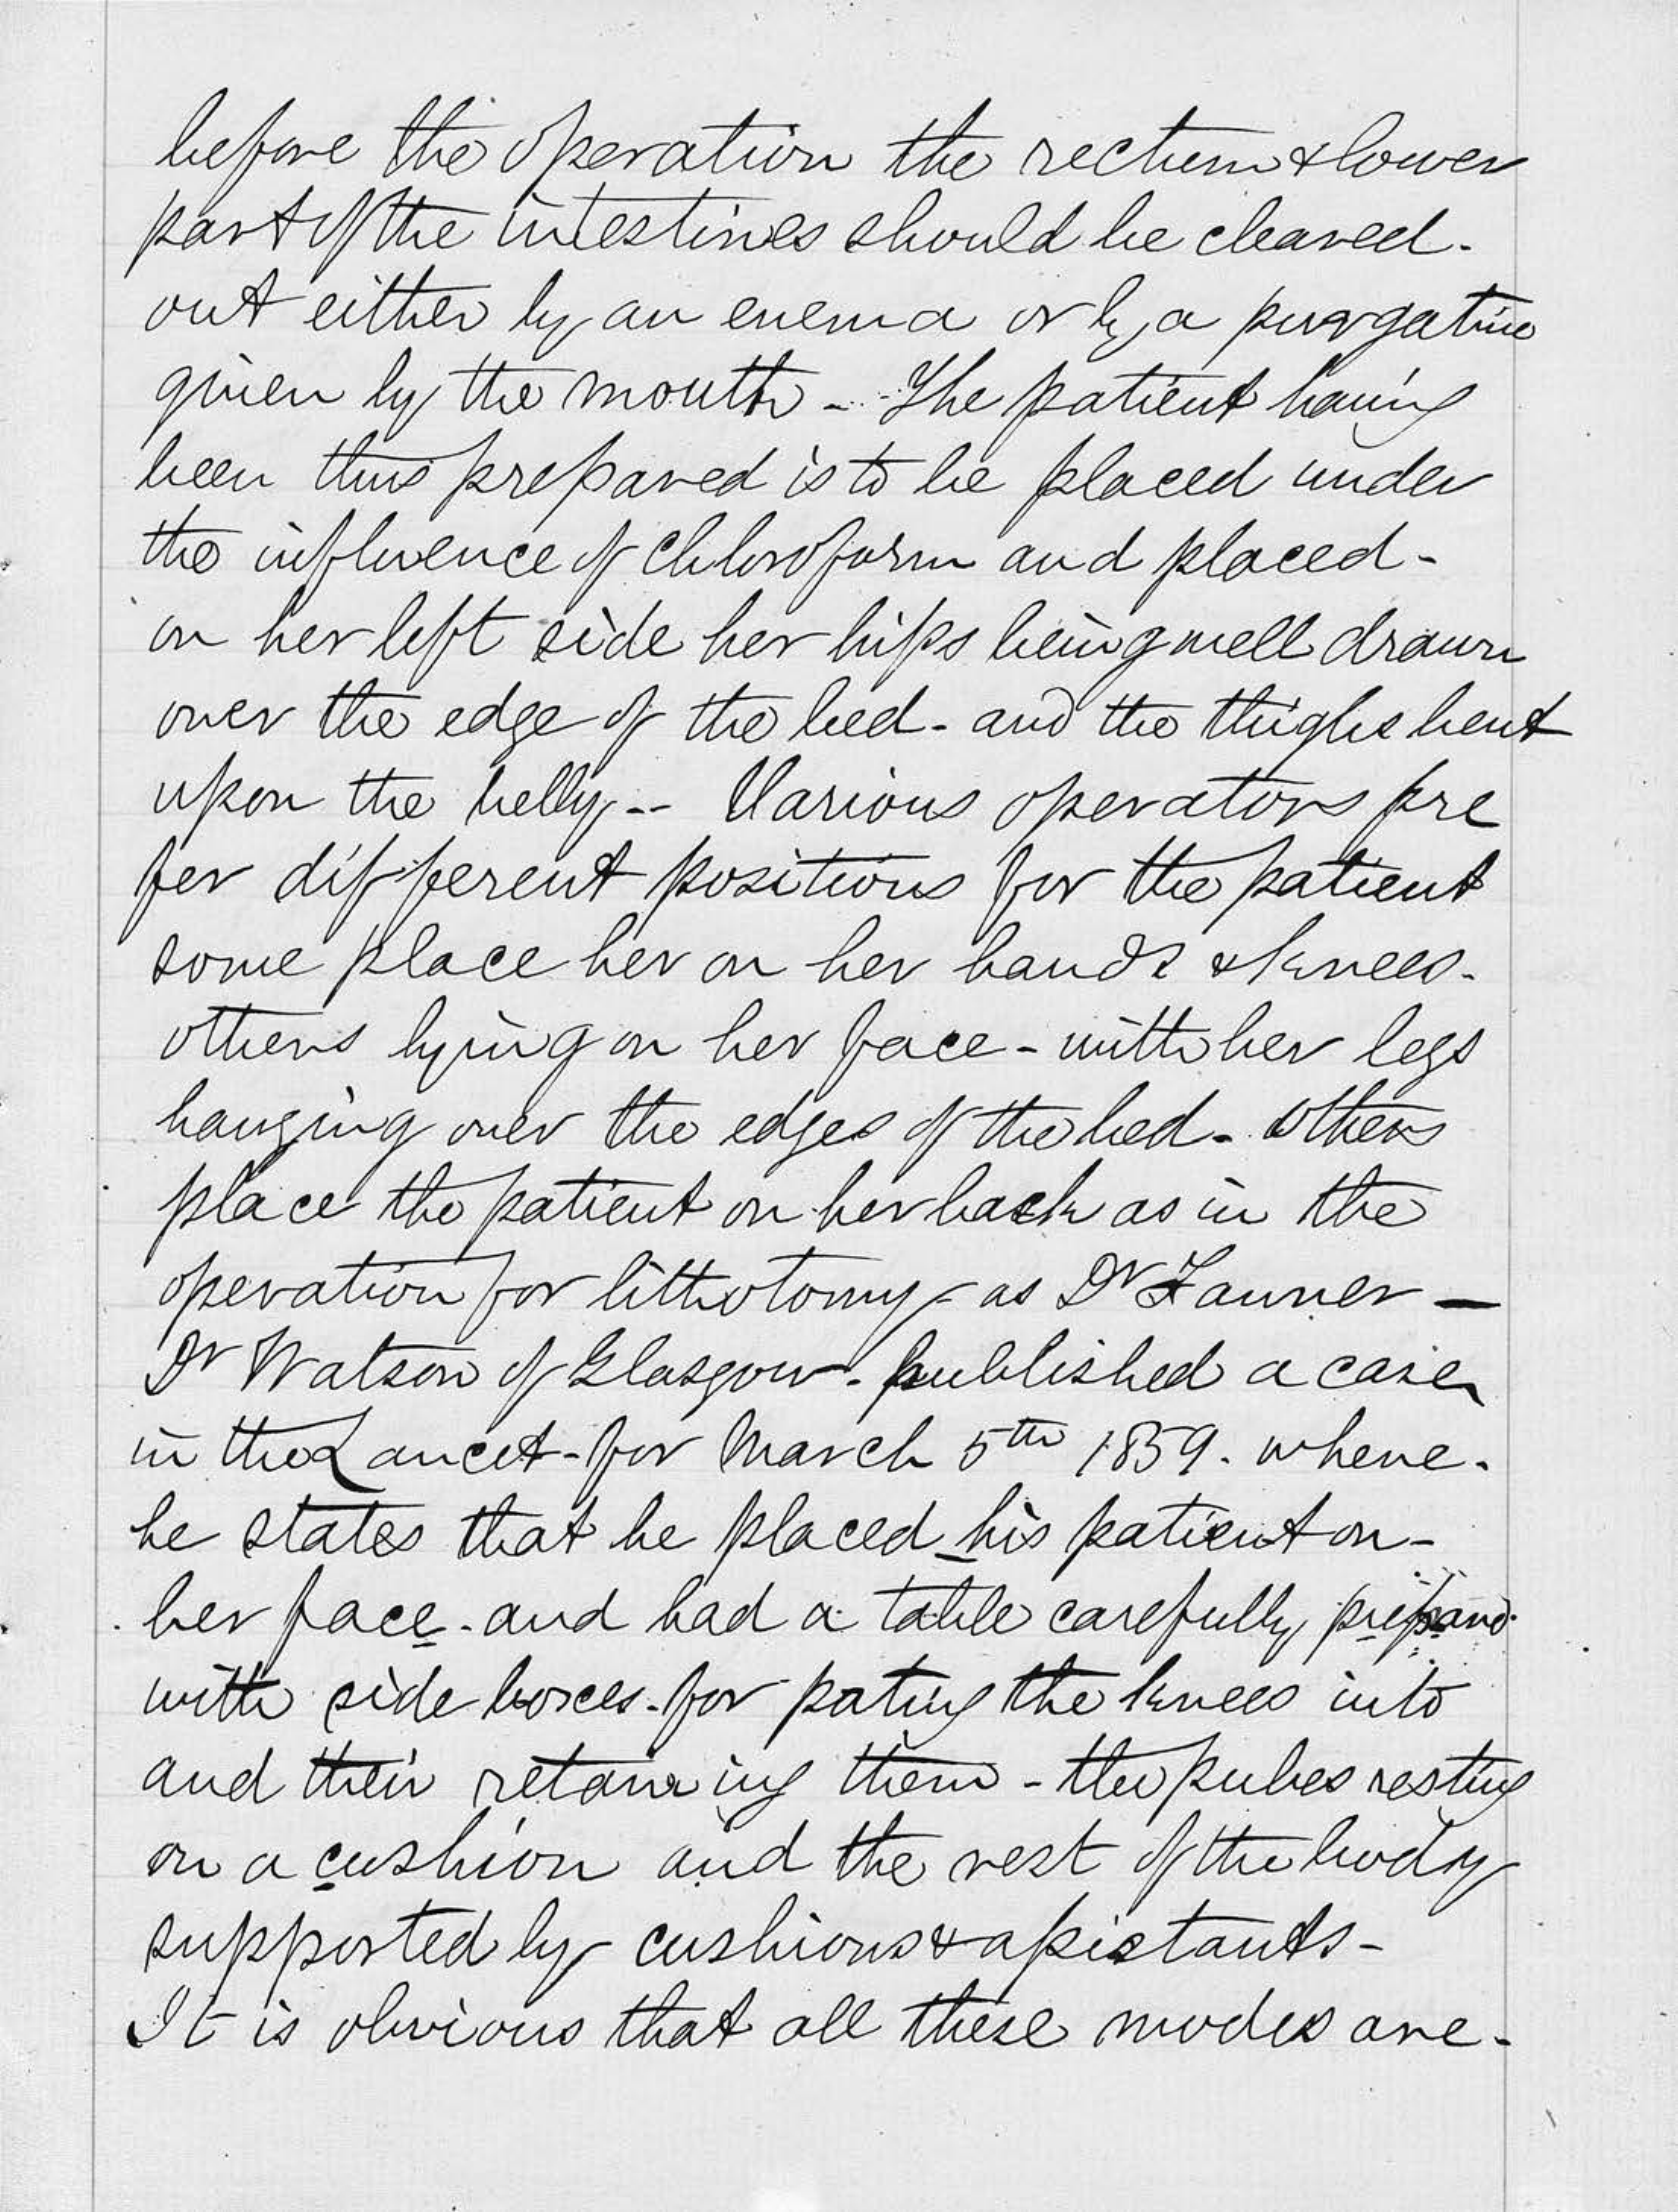 before the operation the rectum & lower
part of the intestines should be cleared-
out either by an enema or by a purgative
given by the mouth - The patient having
been thus prepared is to be placed under
the influence of Chloroform and placed -
on her left side her hips being well drawn
over the edge of the bed - and the thighs bent
upon the belly -- Various operators pre
fer different positions for the patient
some place her on her hands & knees -
others lying on her face - with her legs
hanging over the edges of the bed - others
place the patient on her back as in the
operation for lithotomy - as Dr Tanner —
Dr Watson of Glasgow - published a case
in the Lancet - for March 5th 1859. where -
he states that he placed his patient on -
her face - and had a table carefully prepared
with side boxes - for pating the knees into
and their retaining them - the pubes resting
on a cushion and the rest of the body
supported by cushions & assistants -
It is obvious that all these modes are -